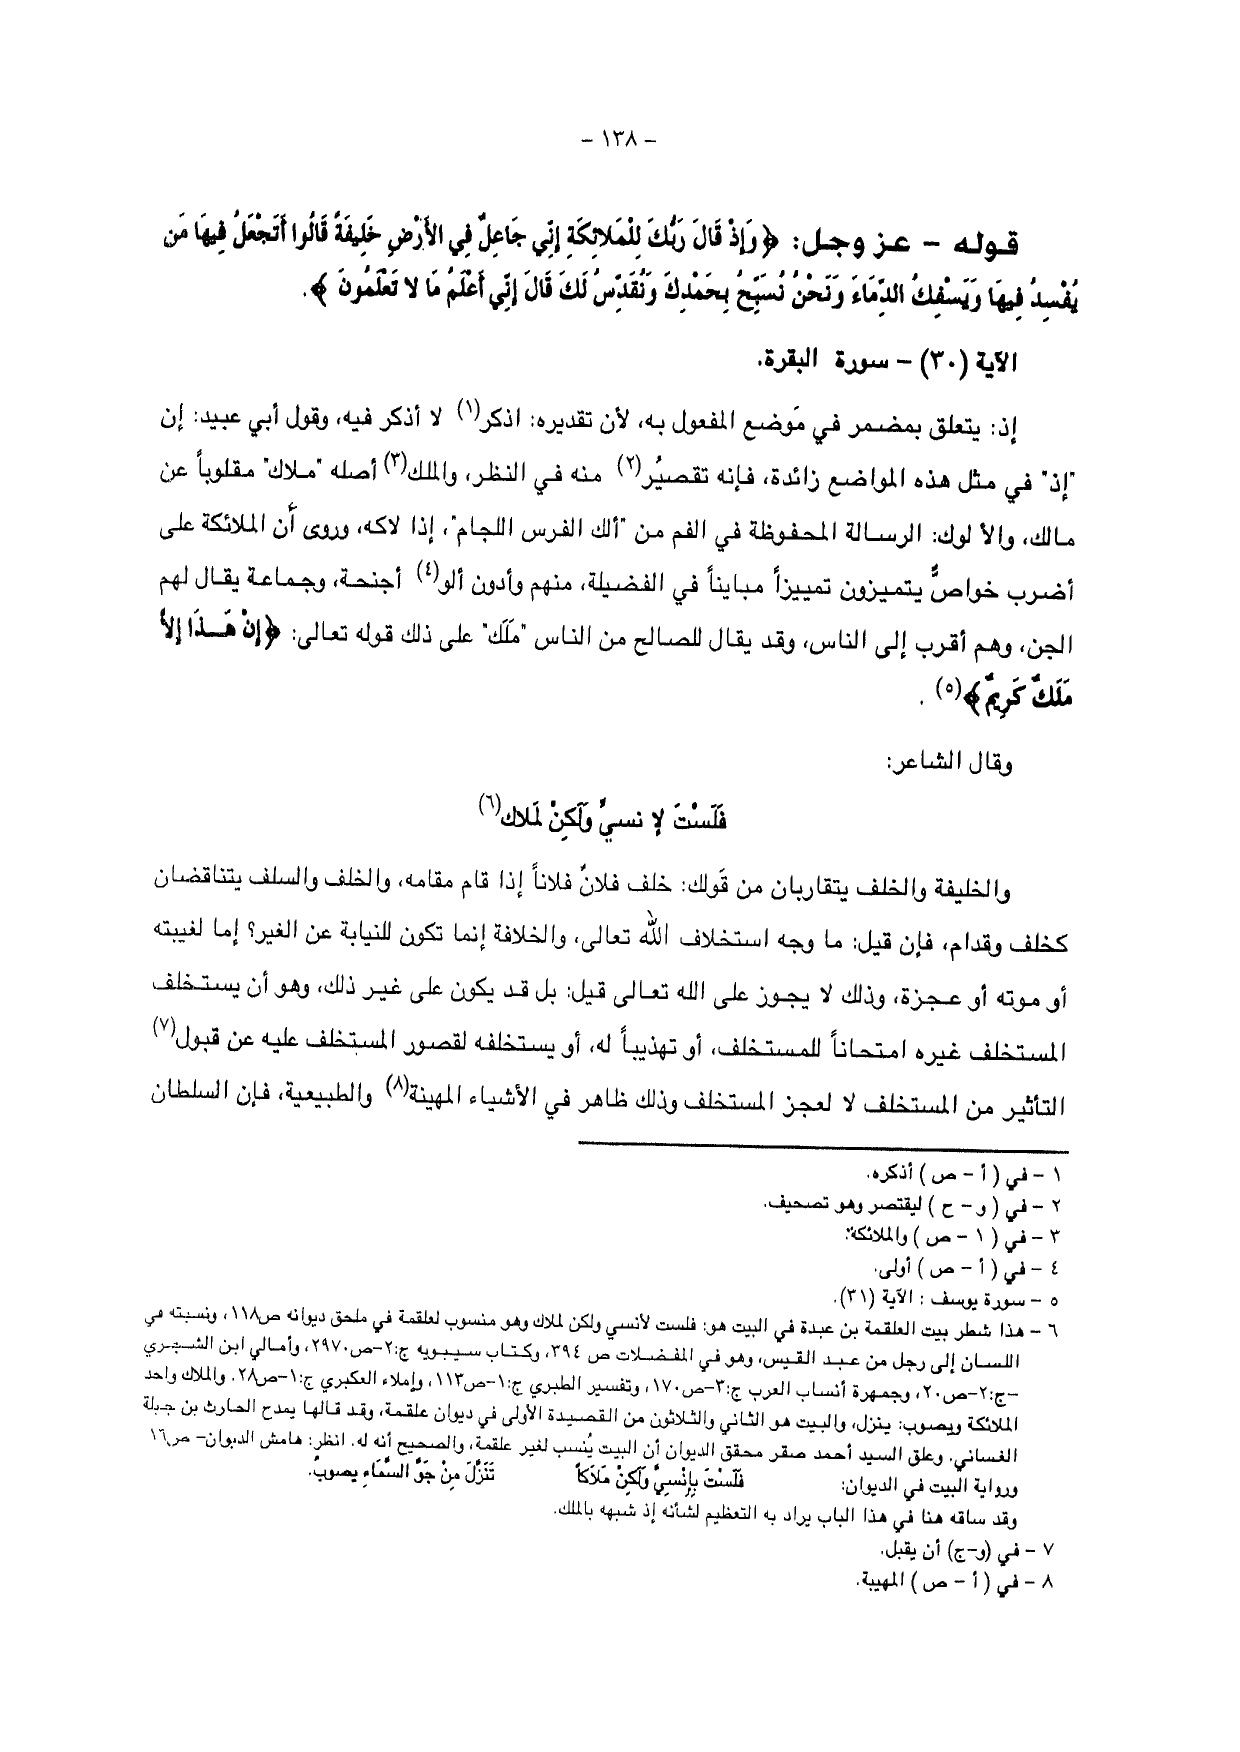 - ١٣٨ -
قوله - عز وجل: ﴿ وَإِذْ قَالَ رَبُّكَ لِلْمَلائِكَةِ إِنِّي جَاعِلٌ فِي الأَرْضِ خَلِيفَةً قَالُوا أَتَجْعَلُ فِيهَا مَن
يُفْسِدُ فِيهَا وَيَسْفِكُ الدِّمَاءَ وَنَحْنُ نُسَبِّحُ بِحَمْدِكَ وَنُقَدِّسُ لَكَ قَالَ إِنِّي أَعْلَمُ مَا لا تَعْلَمُونَ ﴾.
الآية (٣٠) - سورة البقرة.
إذ: يتعلق بمضمر في مَوضع المفعول به، لأن تقديره: اذكر(١) لا أذكر فيه، وقول أبي عبيد: إن
"إذ" في مثل هذه المواضع زائدة، فإنه تقصيُر(٢) منه في النظر، والملك(٣) أصله "ملاك" مقلوباً عن
مالك، والألوك: الرسالة المحفوظة في الفم من "ألك الفرس اللجام"، إذا لاكه، وروى أن الملائكة على
أضرب خواصٌّ يتميزون تمييزاً مبايناً في الفضيلة، منهم وأدون ألو(٤) أجنحة، وجماعة يقال لهم
الجن، وهم أقرب إلى الناس، وقد يقال للصالح من الناس "ملَك" على ذلك قوله تعالى: ﴿إِنْ هَـذَا إِلاَّ
مَلَكٌ كَرِيمٌ﴾(٥) .
وقال الشاعر:
فَلَسْتَ لإ نسيُّ وَلَكِنْ لمَلاك(٦)
والخليفة والخلف يتقاربان من قَولك: خلف فلانٌ فلاناً إذا قام مقامه، والخلف والسلف يتناقضان
كخلف وقدام، فإن قيل: ما وجه استخلاف الله تعالى، والخلافة إنما تكون للنيابة عن الغير؟ إما لغيبته
أو موته أو عجزة، وذلك لا يجوز على الله تعالى قيل: بل قد يكون على غير ذلك، وهو أن يستخلف
المستخلف غيره امتحاناً للمستخلف، أو تهذيباً له، أو يستخلفه لقصور المستخلف عليه عن قبول(٧)
التأثير من المستخلف لا لعجز المستخلف وذلك ظاهر في الأشياء المهينة(٨) والطبيعية، فإن السلطان
١ - في ( أ - ص ) أذكره.
٢ - في ( و - ح ) ليقتصر وهو تصحيف.
٣ - في ( ١ - ص ) والملائكة:
٤ - في ( أ - ص ) أولى.
٥ - سورة يوسف : الآية (٣١).
٦ - هذا شطر بيت العلقمة بن عبدة في البيت هو: فلست لأنسي ولكن لملاك وهو منسوب لعلقمة في ملحق ديوانه ص١١٨، ونسبته في
اللسان إلى رجل من عبد القيس، وهو في المفضلات ص ٣٩٤، وكتاب سيبويه ج:٢-ص٢٩٧٠، وأمالي ابن الشجري
-ج:٢-ص٢٠، وجمهرة أنساب العرب ج:٣-ص١٧٠، وتفسير الطبري ج:١-ص١١٣، وإملاء العكبري ج:١-ص٢٨. والملاك واحد
الملائكة ويصوب: ينزل، والبيت هو الثاني والثلاثون من القصيدة الأولى في ديوان علقمة، وقد قالها يمدح الحارث بن جبلة
الغساني. وعلق السيد أحمد صقر محقق الديوان أن البيت يُنسب لغير علقمة، والصحيح أنه له. انظر: هامش الديوان- ص١٦
ورواية البيت في الديوان: فَلَسْتَ بِإِنْسِيٍّ وَلَكِنْ مَلَاكاً تَنَزَّلَ مِنْ جَوِّ السَّمَاءِ يصوبُ.
وقد ساقه هنا في هذا الباب يراد به التعظيم لشأنه إذ شبهه بالملك.
٧ - في (و-ج) أن يقبل.
٨ - في ( أ - ص ) المهيبة.